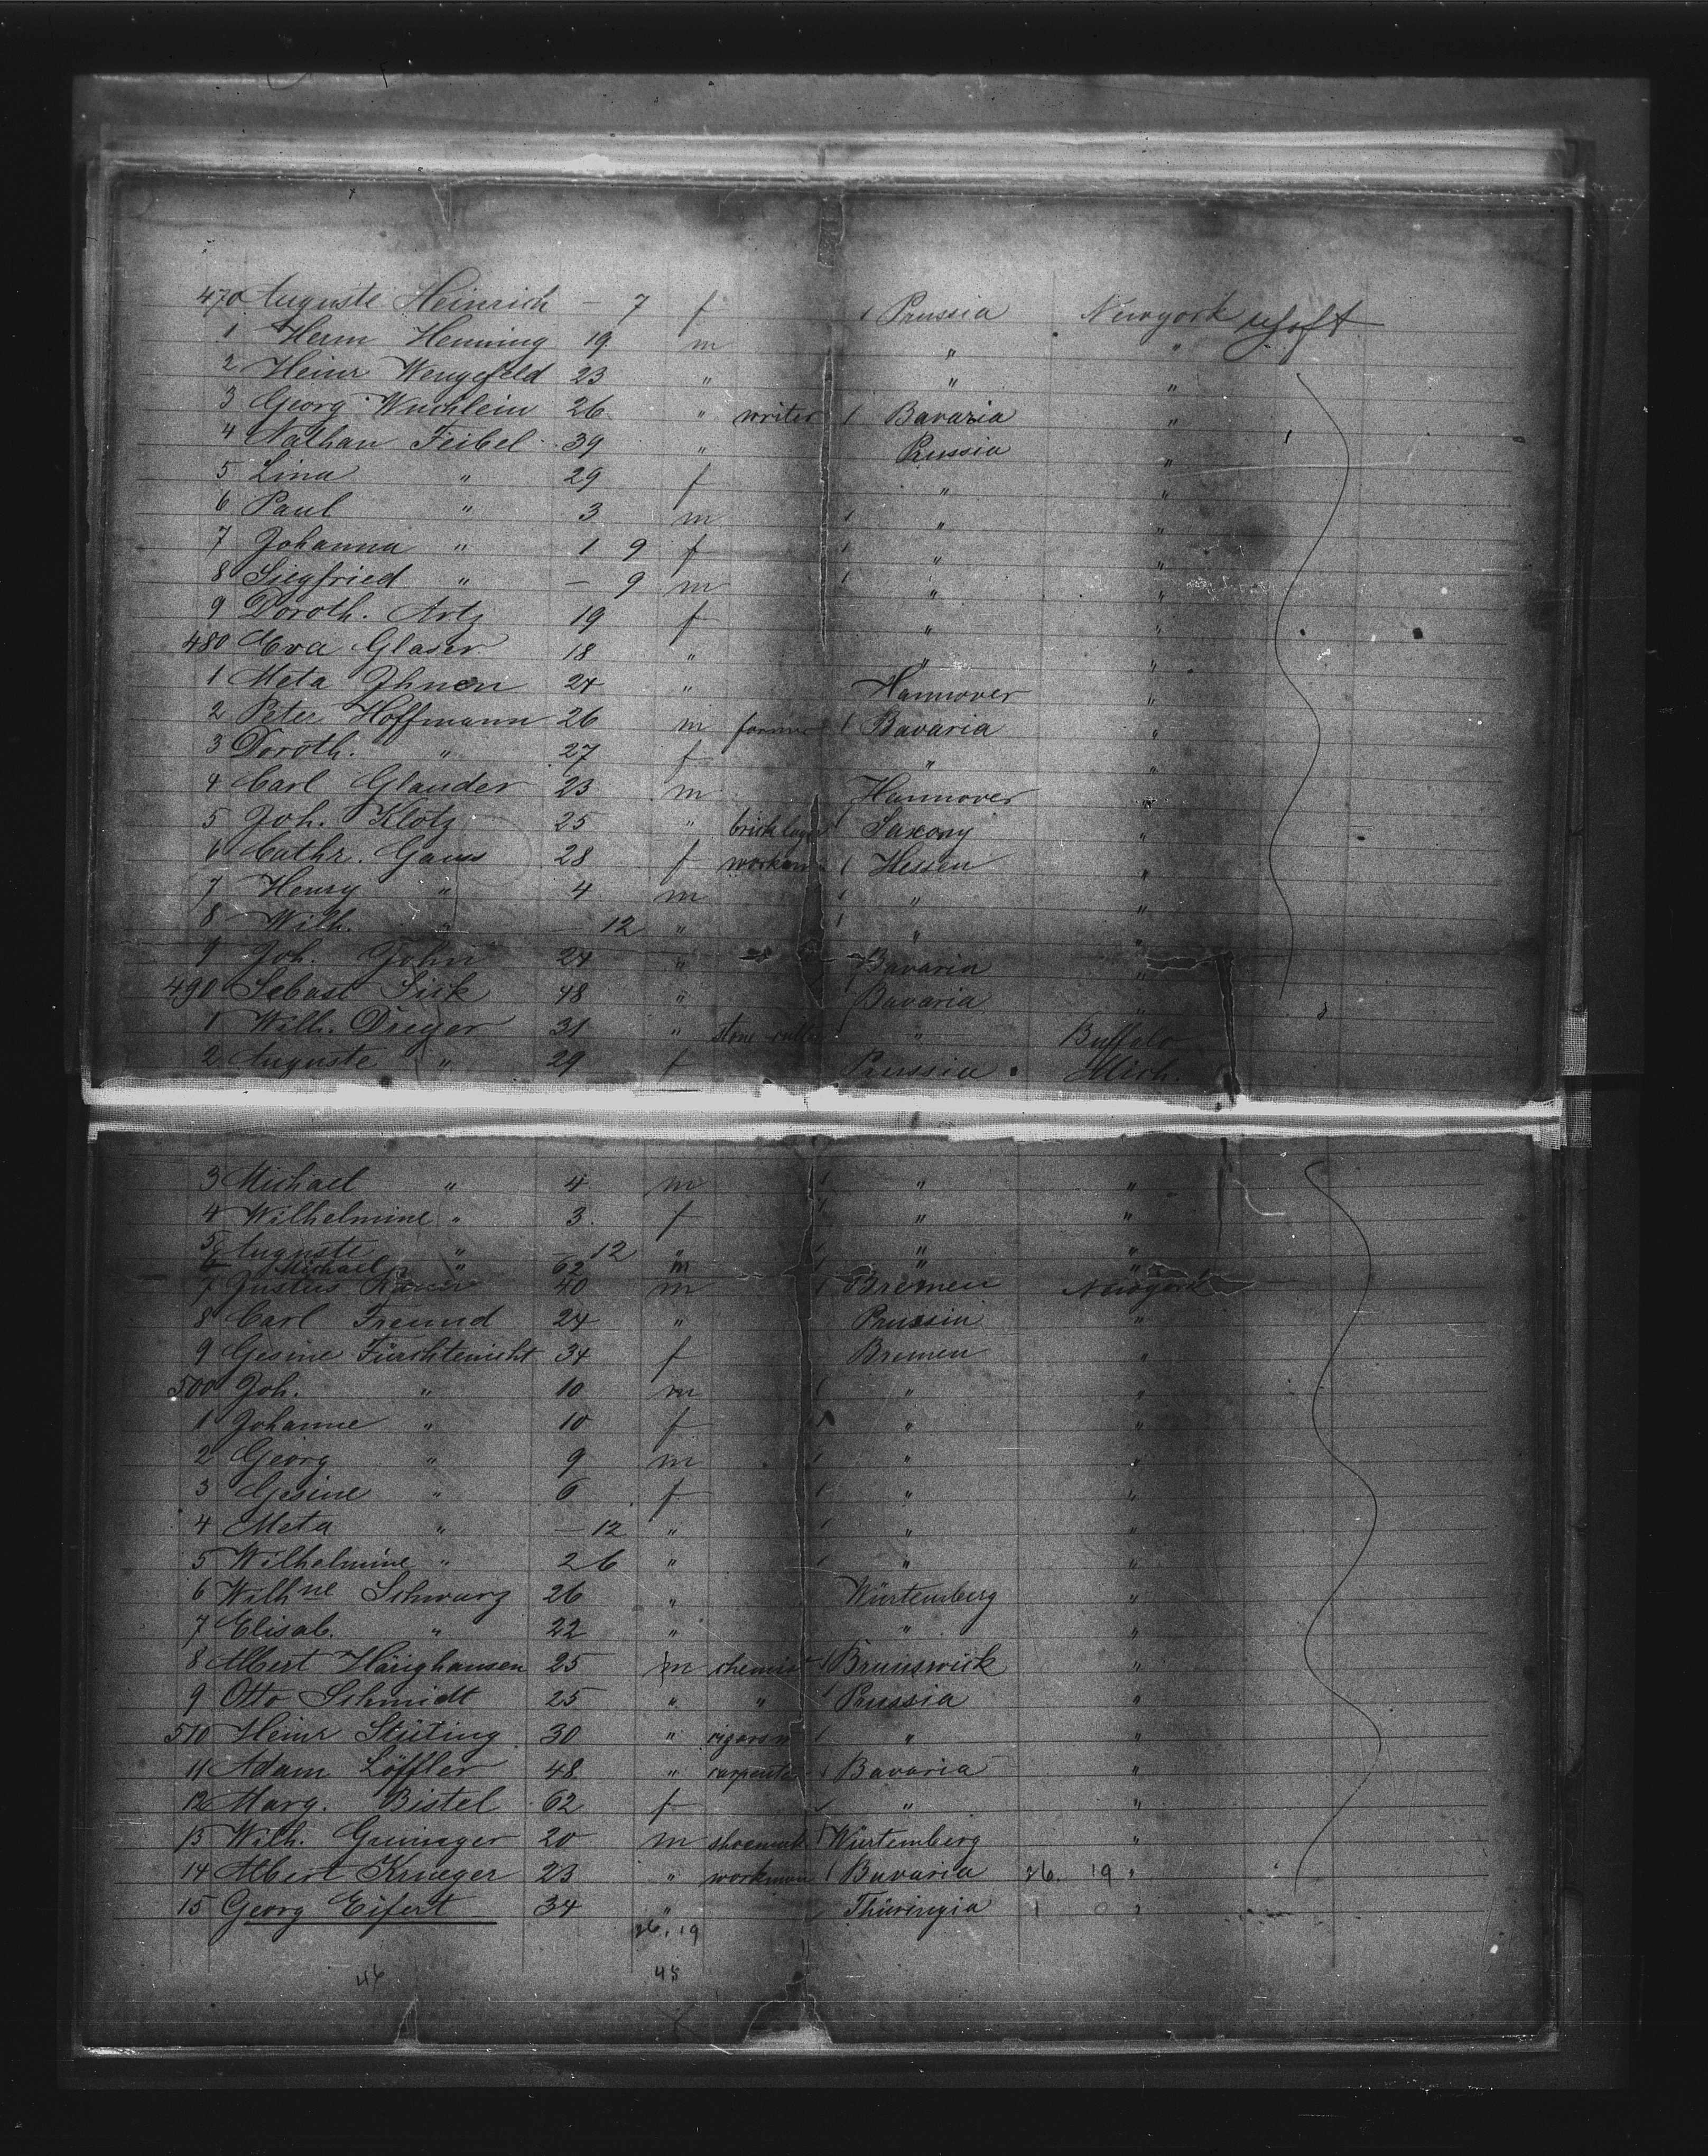 470 Auguste Heinrich — 7 f 1 Prussia Newyork
1 Herm Henning 19 m " "
2 Heinr Wengefeld 23 " " "
3 Georg Wuchlein 26 " writer 1 Bavaria "
4 Nathan Feibel 39 " Prussia "
5 Lina " 29 f " "
6 Paul " 3 m 1 " "
7 Johanna " 1 9 f 1 " "
8 Siegfried " — 9 m 1 " "
9 Doroth. Artz 19 f " "
480 Eva Glaser 18 " " "
1 Meta Ihnen 24 " Hannover "
2 Peter Hoffmann 26 m 1 Bavaria "
3 Doroth. " 27 f " "
4 Carl Glander 23 m Hannover "
5 Joh. Klotz 25 " Saxony "
6 Cathr. Gauss 28 f 1 Hessen "
7 Henry " 4 m 1 " "
8 Wilh. " — 12 " 1 " "
9 Joh. John 24 " Bavaria "
490 Sebast Sick 48 " Bavaria "
1 Wilh. Dreyer 31 " " Buffalo
2 Auguste " 29 f Prussia Mich.
3 Michael " 4 m 1 " "
4 Wilhelmine " 3 f 1 " "
5 Auguste " — 12 " 1 " "
6 Michael " 62 m " "
7 Justus 40 m 1 Bremen Newyork
8 Carl Freund 24 " Prussia "
9 Gesine Fürchtenicht 34 f Bremen "
500 Joh. " 10 m 1 " "
1 Johanne " 10 f " "
2 Georg " 9 m 1 " "
3 Gesine " 6 f 1 " "
4 Meta " — 12 " 1 " "
5 Wilhelmine " 2 6 " 1 " "
6 Wilhne Schwarz 26 " Würtemberg "
7 Elisab. " 22 " " "
8 Albert 25 m chemist 1 Brunswick "
9 Otto Schmidt 25 " " 1 Prussia "
510 Heinr Stüting 30 " 1 " "
11 Adam Löffler 48 " carpenter 1 Bavaria "
12 Marg. Bistel 62 f " "
13 Wilh. 20 m 1 Würtemberg "
14 Albert Krueger 23 " workman 1 Bavaria 26. 19 "
15 Georg Eifert 34 " Thüringia 1 0 "
26.19
46 45